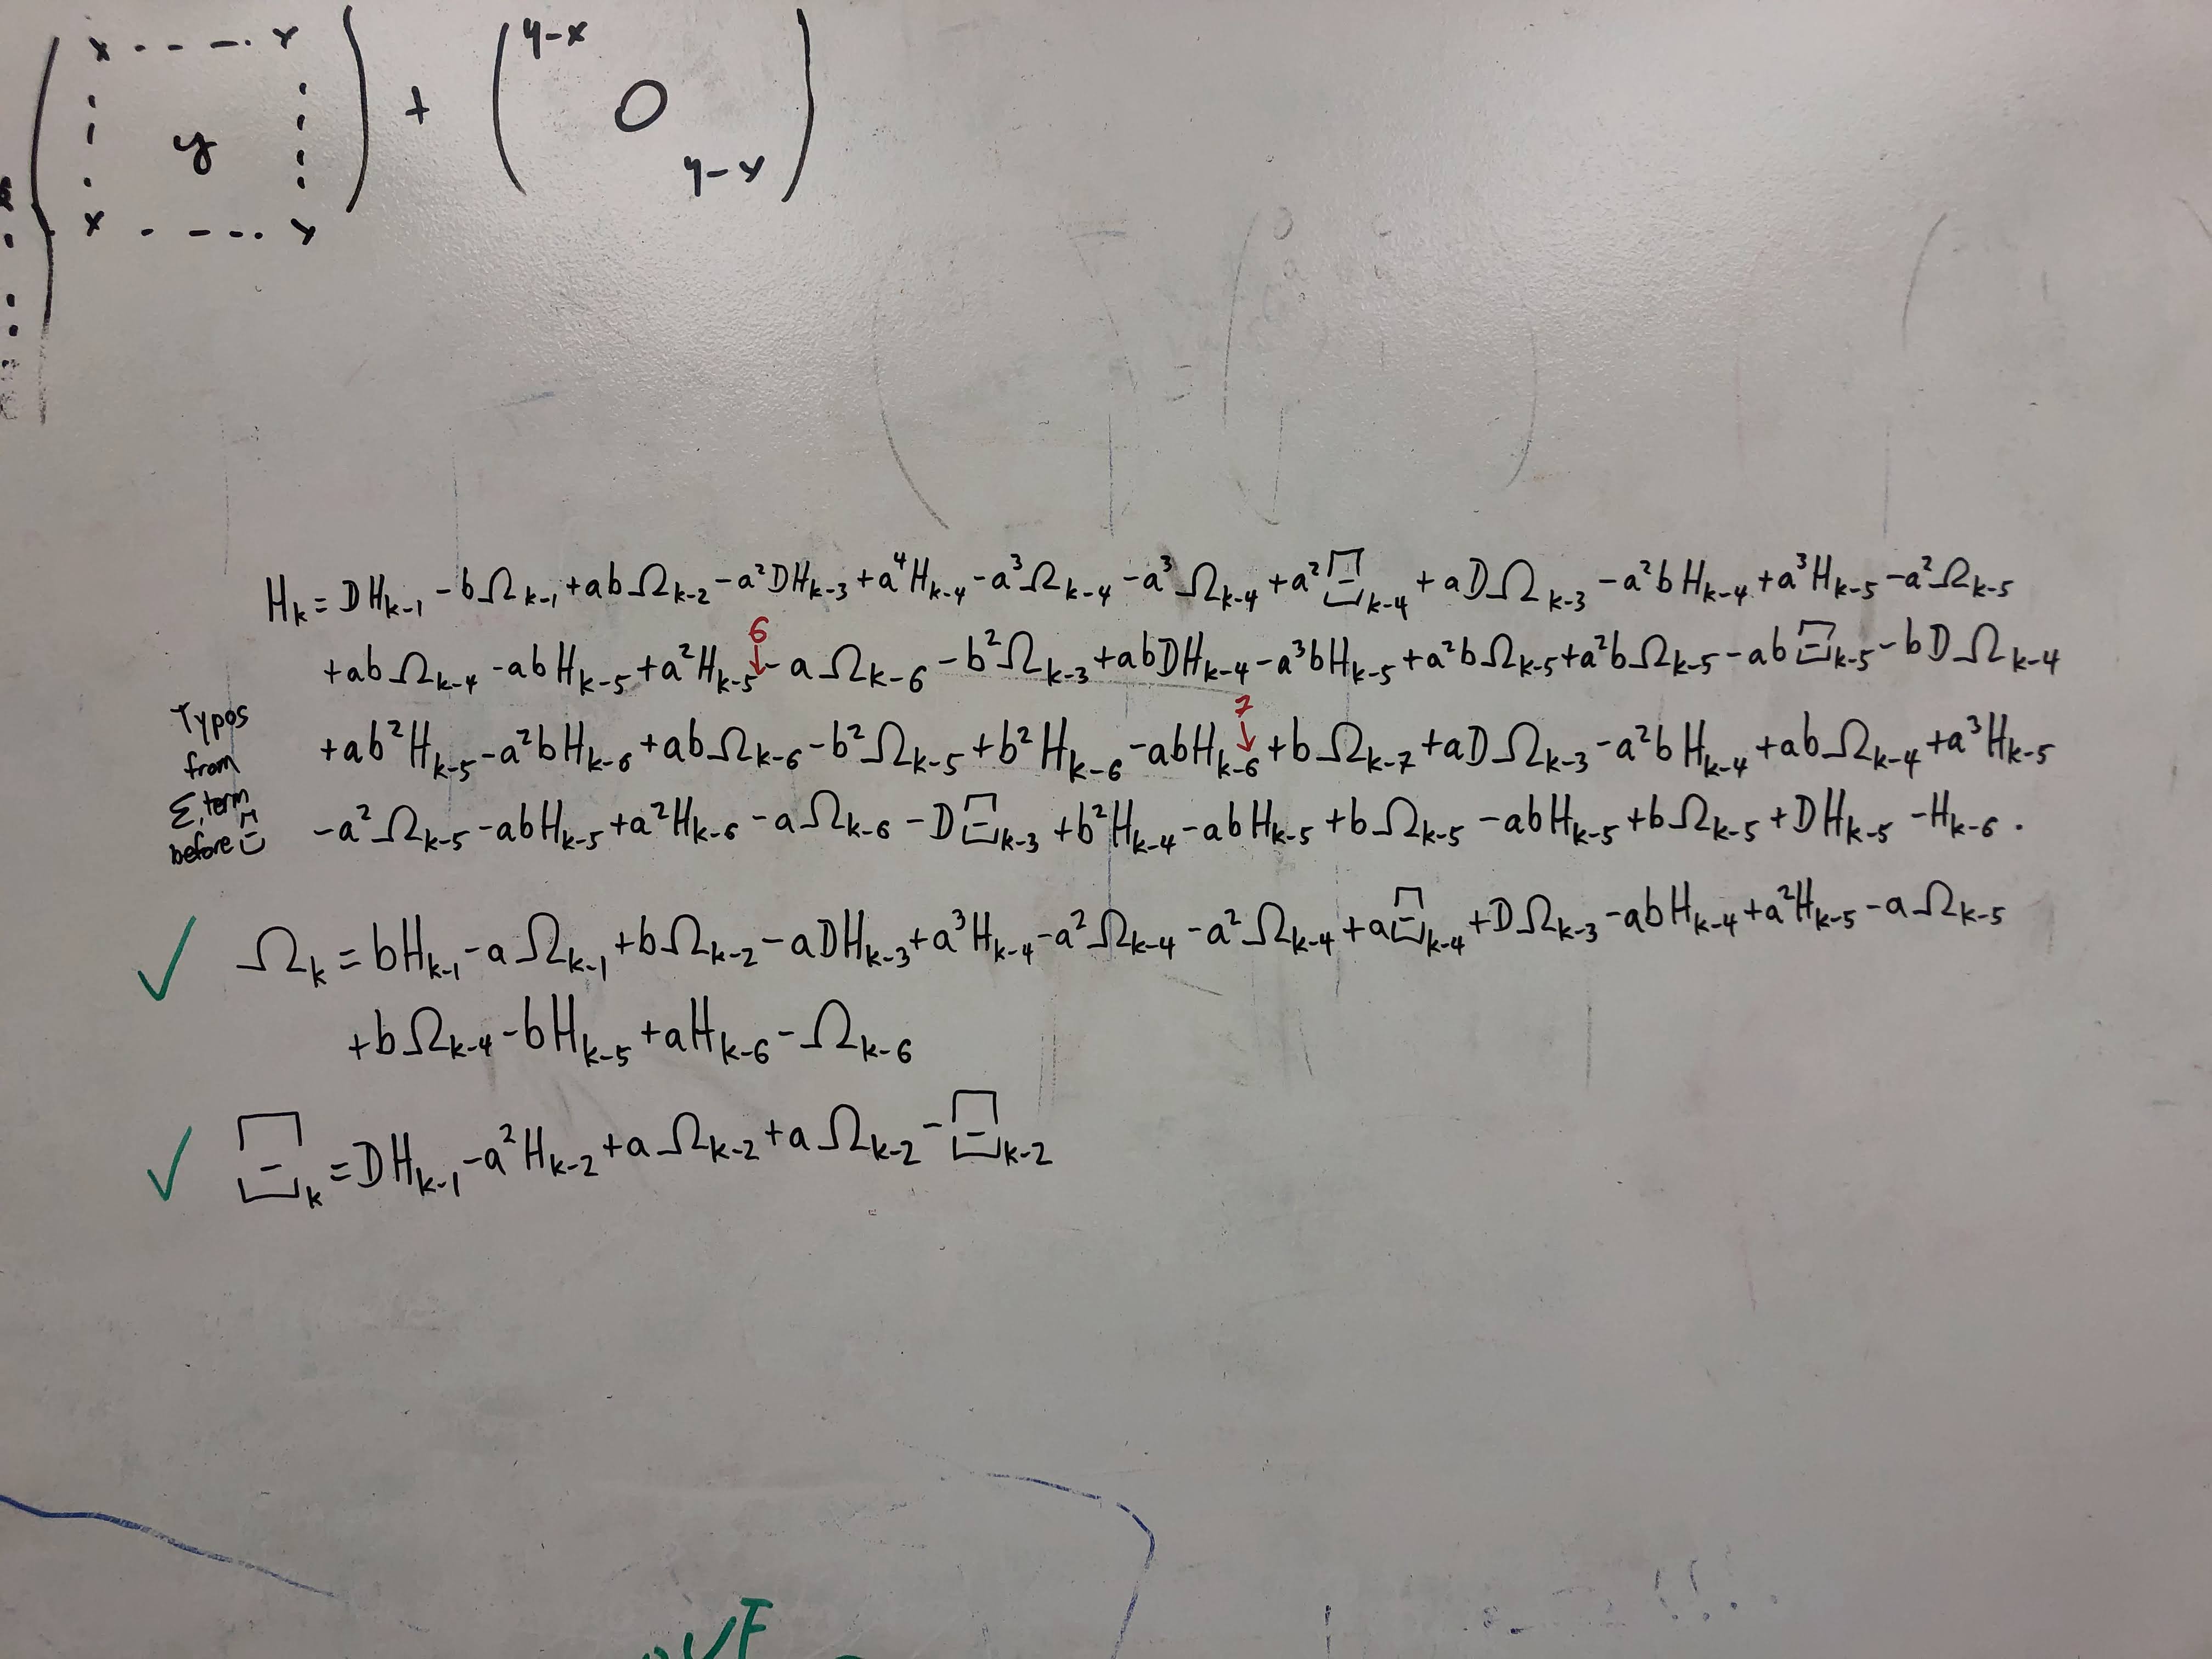 x - - - · x
y
x · - - - · x
+
y-x
0
y-x
H_k = DH_{k-1} - bΩ_{k-1} + abΩ_{k-2} - a²DH_{k-3} + a⁴H_{k-4} - a³Ω_{k-4} - a³Ω_{k-4} + a²Ξ_{k-4} + aDΩ_{k-3} - a²bH_{k-4} + a³H_{k-5} - a²Ω_{k-5}
6
↓
+ abΩ_{k-4} - abH_{k-5} + a²H_{k-5} - aΩ_{k-6} - b²Ω_{k-3} + abDH_{k-4} - a³bH_{k-5} + a²bΩ_{k-5} + a²bΩ_{k-5} - abΞ_{k-5} - bDΩ_{k-4}
7
↓
+ ab²H_{k-5} - a²bH_{k-6} + abΩ_{k-6} - b²Ω_{k-5} + b²H_{k-6} - abH_{k-6} + bΩ_{k-7} + aDΩ_{k-3} - a²bH_{k-4} + abΩ_{k-4} + a³H_{k-5}
- a²Ω_{k-5} - abH_{k-5} + a²H_{k-6} - aΩ_{k-6} - DΞ_{k-3} + b²H_{k-4} - abH_{k-5} + bΩ_{k-5} - abH_{k-5} + bΩ_{k-5} + DH_{k-5} - H_{k-6} .
Typos
from
Σ, term
before
✓ Ω_k = bH_{k-1} - aΩ_{k-1} + bΩ_{k-2} - aDH_{k-3} + a³H_{k-4} - a²Ω_{k-4} - a²Ω_{k-4} + aΞ_{k-4} + DΩ_{k-3} - abH_{k-4} + a²H_{k-5} - aΩ_{k-5}
+ bΩ_{k-4} - bH_{k-5} + aH_{k-6} - Ω_{k-6}
✓ Ξ_k = DH_{k-1} - a²H_{k-2} + aΩ_{k-2} + aΩ_{k-2} - Ξ_{k-2}